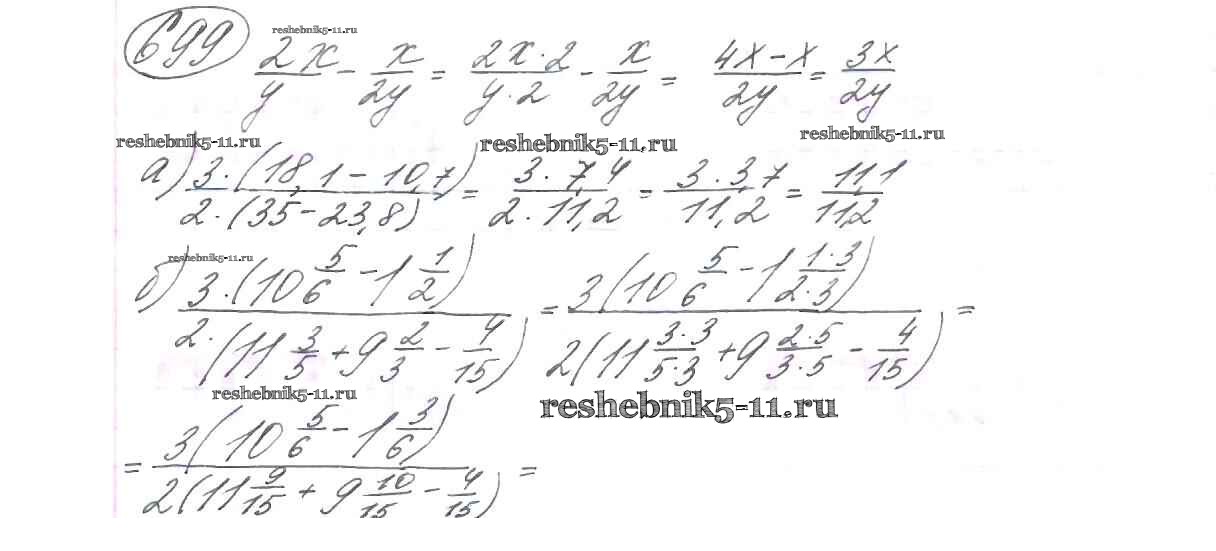 699 reshebnik5-11.ru
2x/y - x/2y = 2x·2/y·2 - x/2y = 4x-x/2y = 3x/2y
reshebnik5-11.ru reshebnik5-11.ru reshebnik5-11.ru
а) 3·(18,1-10,7)/2·(35-23,8) = 3·7,4/2·11,2 = 3·3,7/11,2 = 11,1/11,2
reshebnik5-11.ru
б) 3·(10 5/6 - 1 1/2)/2·(11 3/5 + 9 2/3 - 4/15) = 3(10 5/6 - 1 1·3/2·3)/2(11 3·3/5·3 + 9 2·5/3·5 - 4/15) =
reshebnik5-11.ru reshebnik5-11.ru
= 3(10 5/6 - 1 3/6)/2(11 9/15 + 9 10/15 - 4/15) =